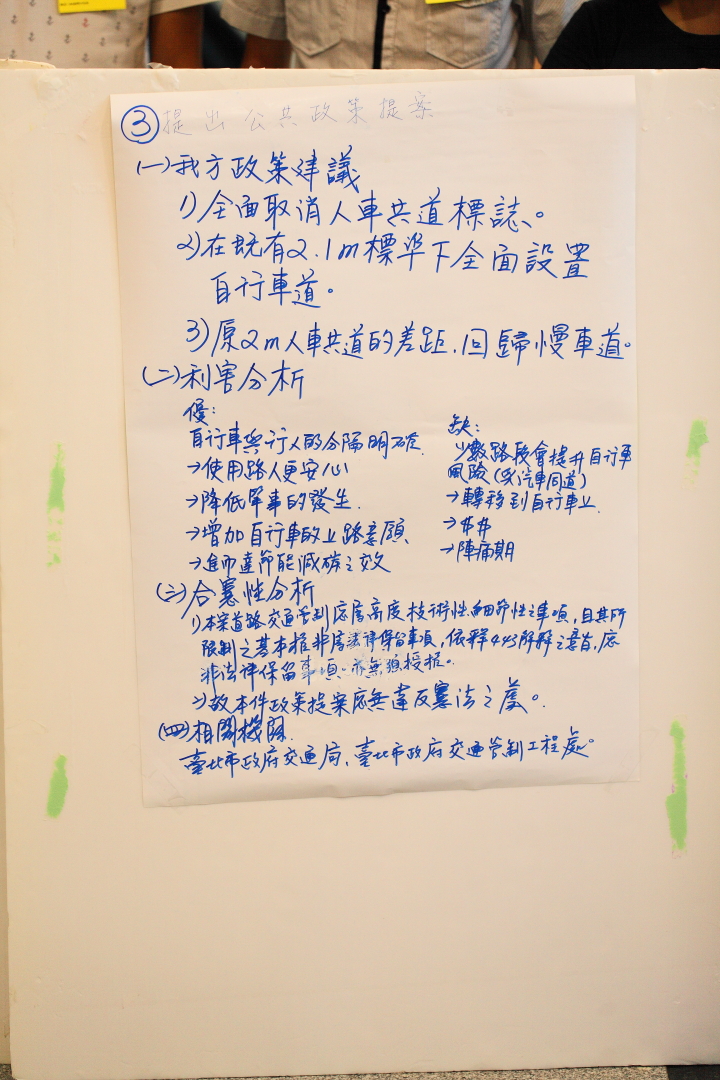 ③提出公共政策提案
(一)我方政策建議
1)全面取消人車共道標誌。
2)在既有2.1m標準下全面設置
自行車道。
3)原2m人車共道的差距,回歸慢車道。
(二)利害分析
優:
自行車與行人的分隔明確
→使用路人更安心
→降低肇事的發生
→增加自行車的上路意願
→進而達節能減碳之效
缺:
少數路段會提升自行車
風險(與汽車同道)
→轉移到自行車上
→成本
→陣痛期
(三)合憲性分析
1)本案道路交通管制應屬高度技術性、細節性之事項,且其所
限制之基本權非屬法律保留事項,依釋443解釋之意旨,應
非法律保留事項。亦無須授權。
2)故本件政策提案應無違反憲法之虞。
(四)相關機關
臺北市政府交通局、臺北市政府交通管制工程處。